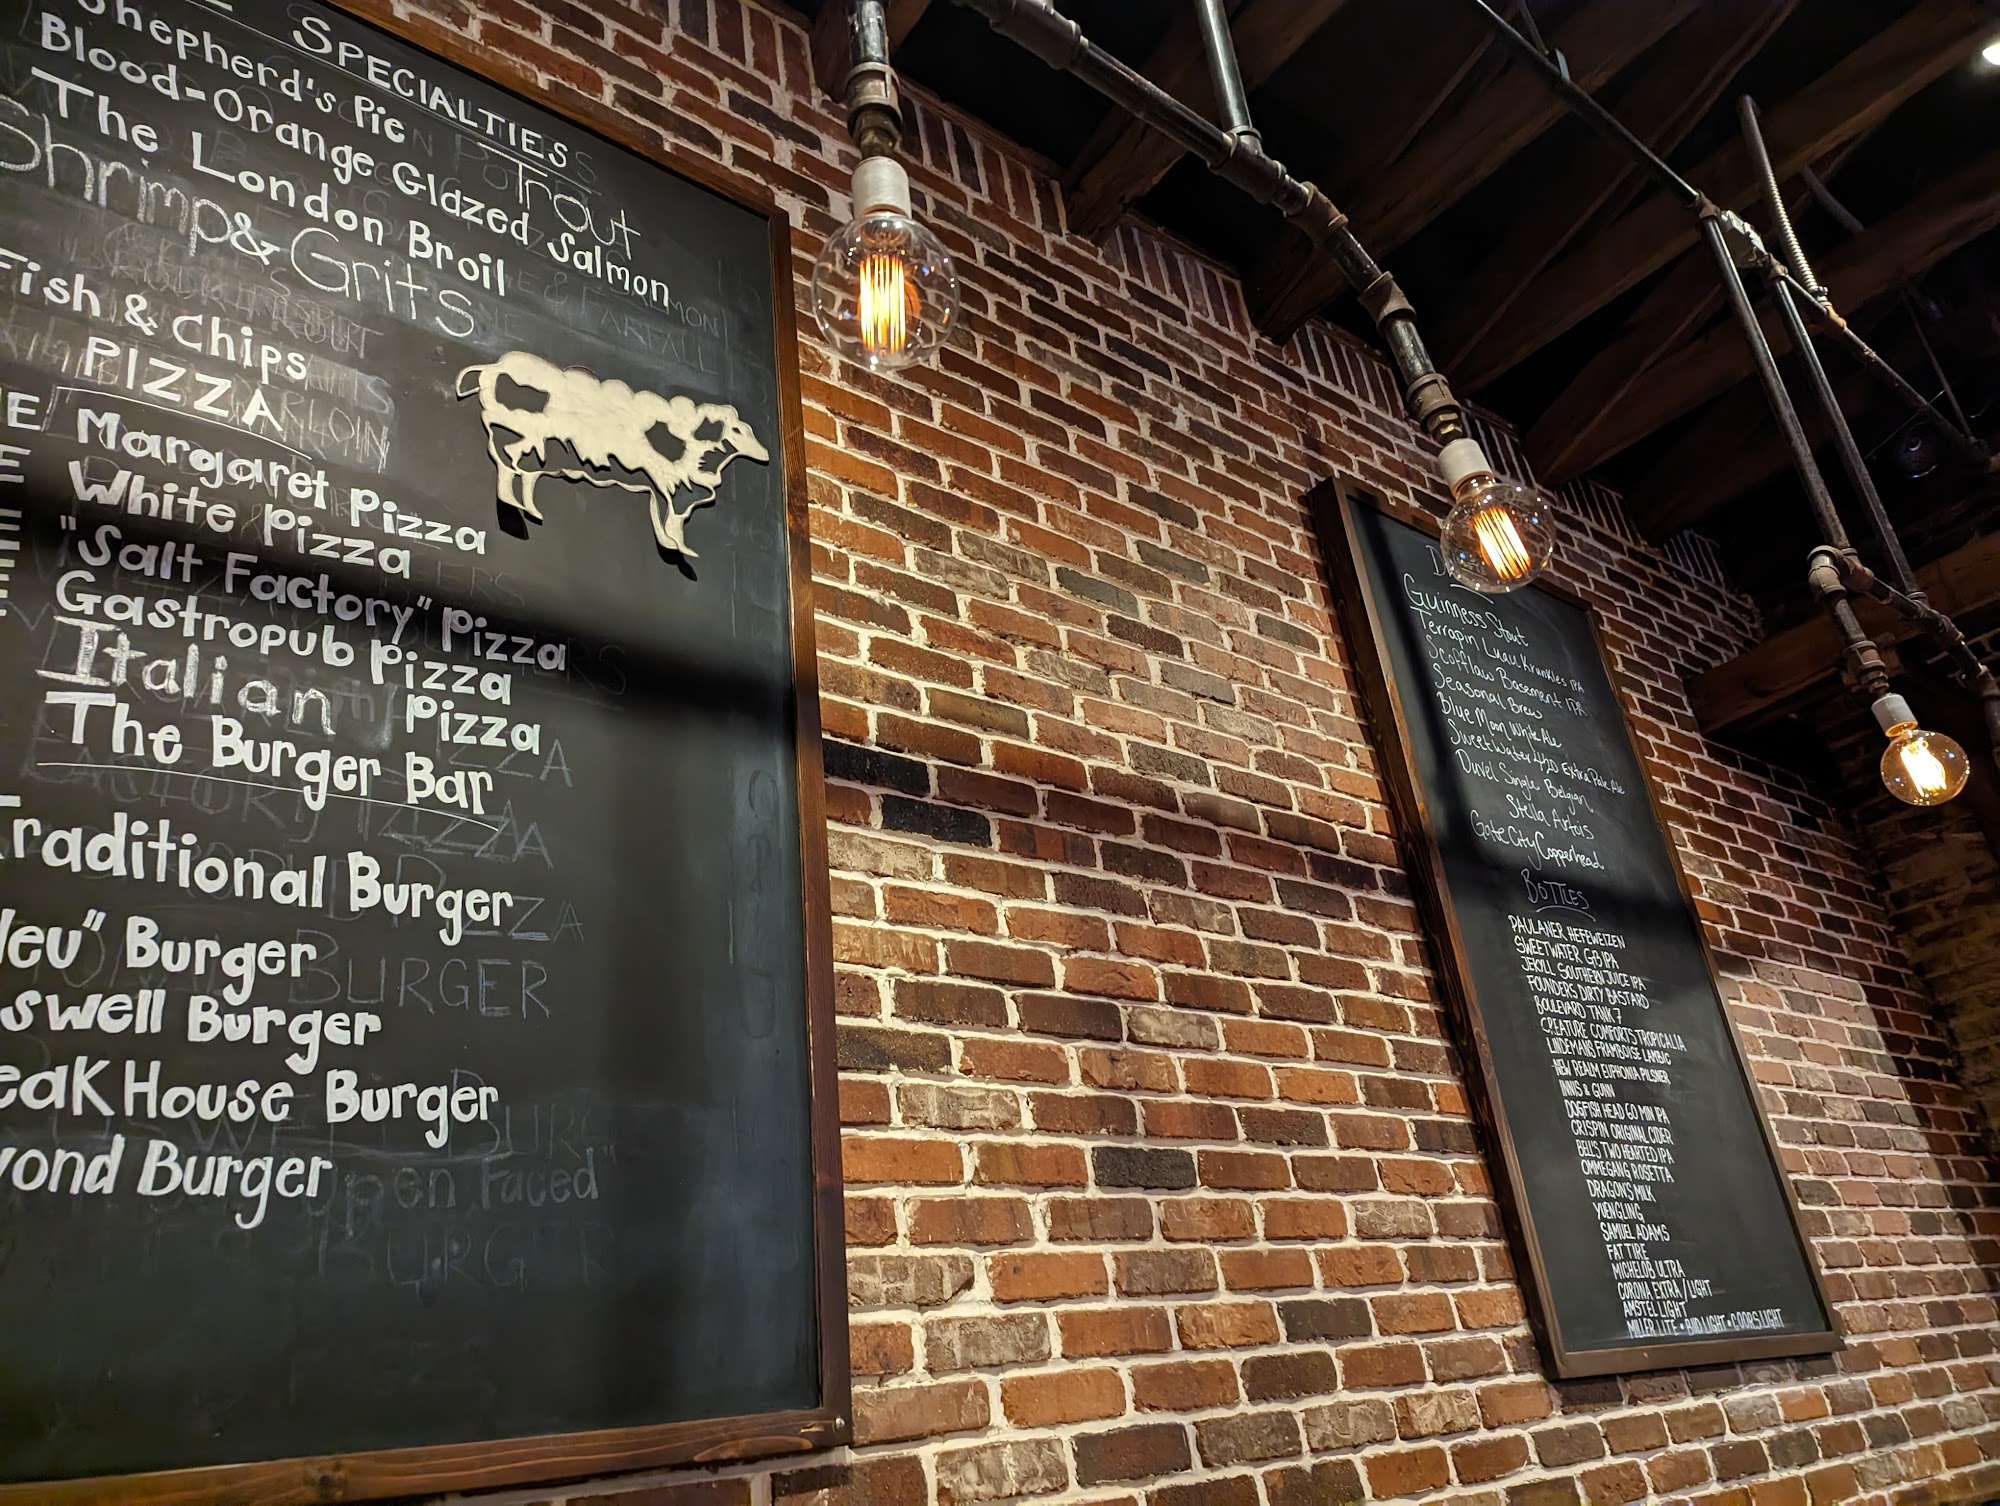 SPECIALTIES
Shepherd's Pie
Trout
Blood-Orange Glazed Salmon
The London Broil
Shrimp & Grits
Fish & Chips
PIZZA
Margaret Pizza
White Pizza
"Salt Factory" Pizza
Gastropub Pizza
Italian Pizza
The Burger Bar
Traditional Burger
leu" Burger
swell Burger
eak House Burger
yond Burger
Open Faced"
BURGER
Guinness Stout
Terrapin Luau Krunkles IPA
Scofflaw Basement IPA
Seasonal Brew
Blue Moon White Ale
Sweetwater 420 Extra Pale Ale
Duvel Single Belgian
Stella Artois
Gate City Copperhead
BOTTLES
PAULANER HEFEWEIZEN
SWEETWATER G13 IPA
JEKYLL SOUTHERN JUICE IPA
FOUNDERS DIRTY BASTARD
BOULEVARD TANK 7
CREATURE COMFORTS TROPICALIA
LINDEMANS FRAMBOISE LAMBIC
NEW REALM EUPHONIA PILSNER
INNIS & GUNN
DOGFISH HEAD 60 MIN IPA
CRISPIN ORIGINAL CIDER
BELL'S TWO HEARTED IPA
OMMEGANG ROSETTA
DRAGON'S MILK
YUENGLING
SAMUEL ADAMS
FAT TIRE
MICHELOB ULTRA
CORONA EXTRA / LIGHT
AMSTEL LIGHT
MILLER LITE • BUD LIGHT • COORS LIGHT